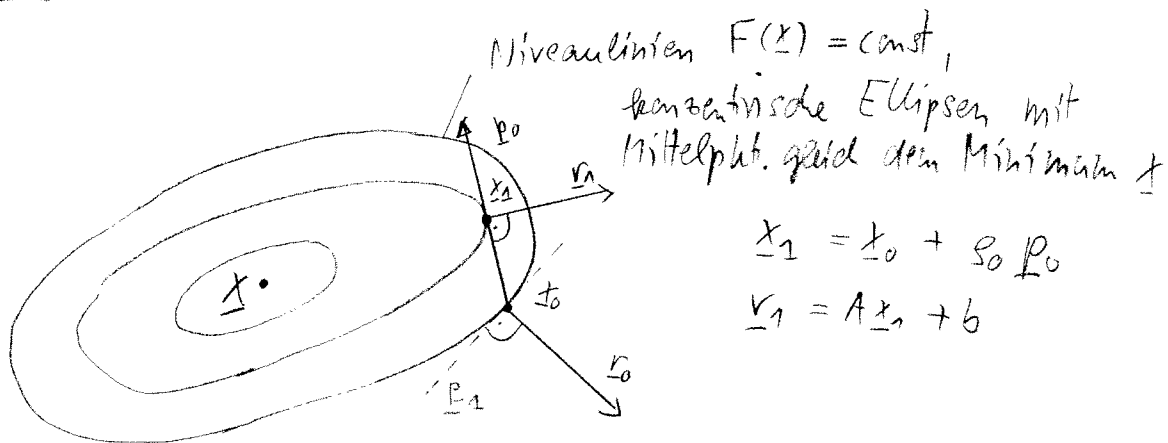 Niveaulinien F(x) = const,
konzentrische Ellipsen mit
Mittelpkt. gleich dem Minimum x
p₀
x₁
r₁
x₁ = x₀ + ρ₀ p₀
x
x₀
r₁ = A x₁ + b
r₀
p₁